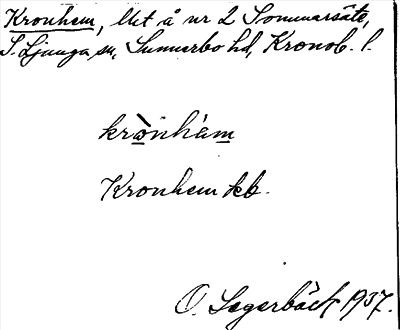 Kronhem, lht å nr 2 Sommarsäte,
S. Ljunga sn, Sunnerbo hd, Kronob. l.
krònhèm
Kronhem kb.
O. Lagerbäck 1937.